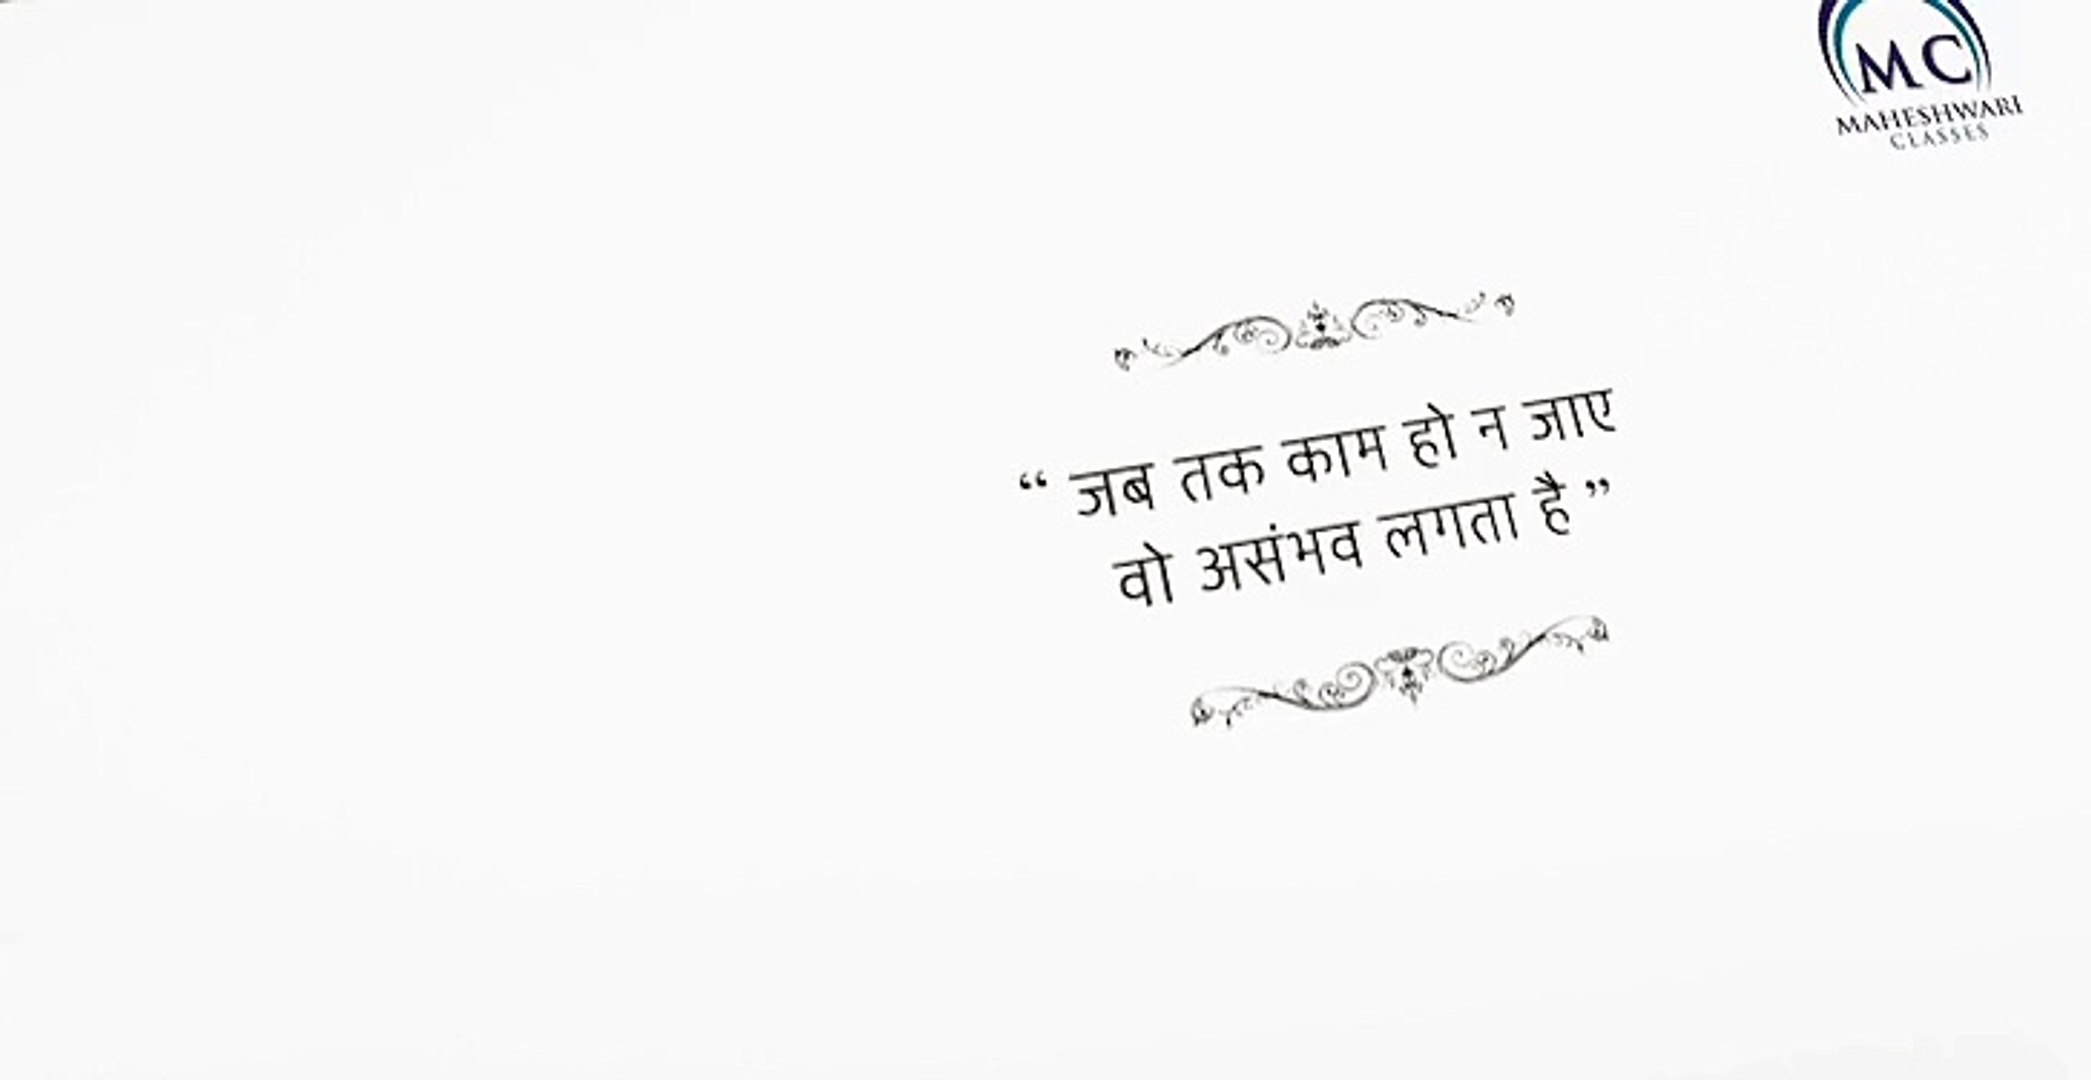 MC
MAHESHWARI
CLASSES
“ जब तक काम हो न जाए
वो असंभव लगता है ”